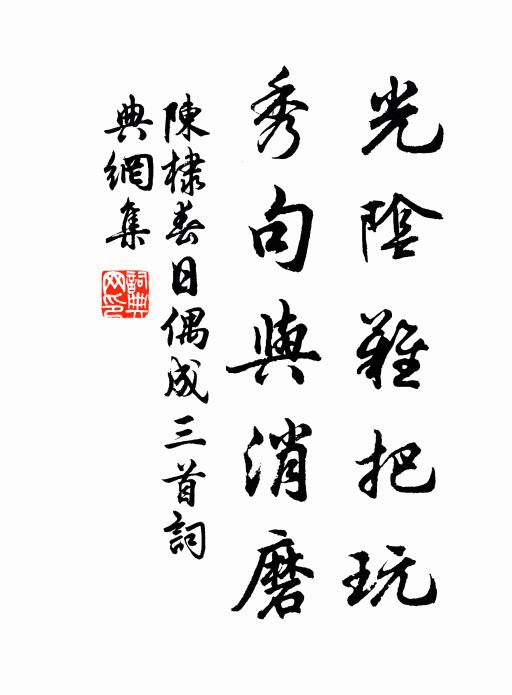 光陰難把玩
秀句與消磨
陳棣春日偶成三首詞
典網集
詞典網印